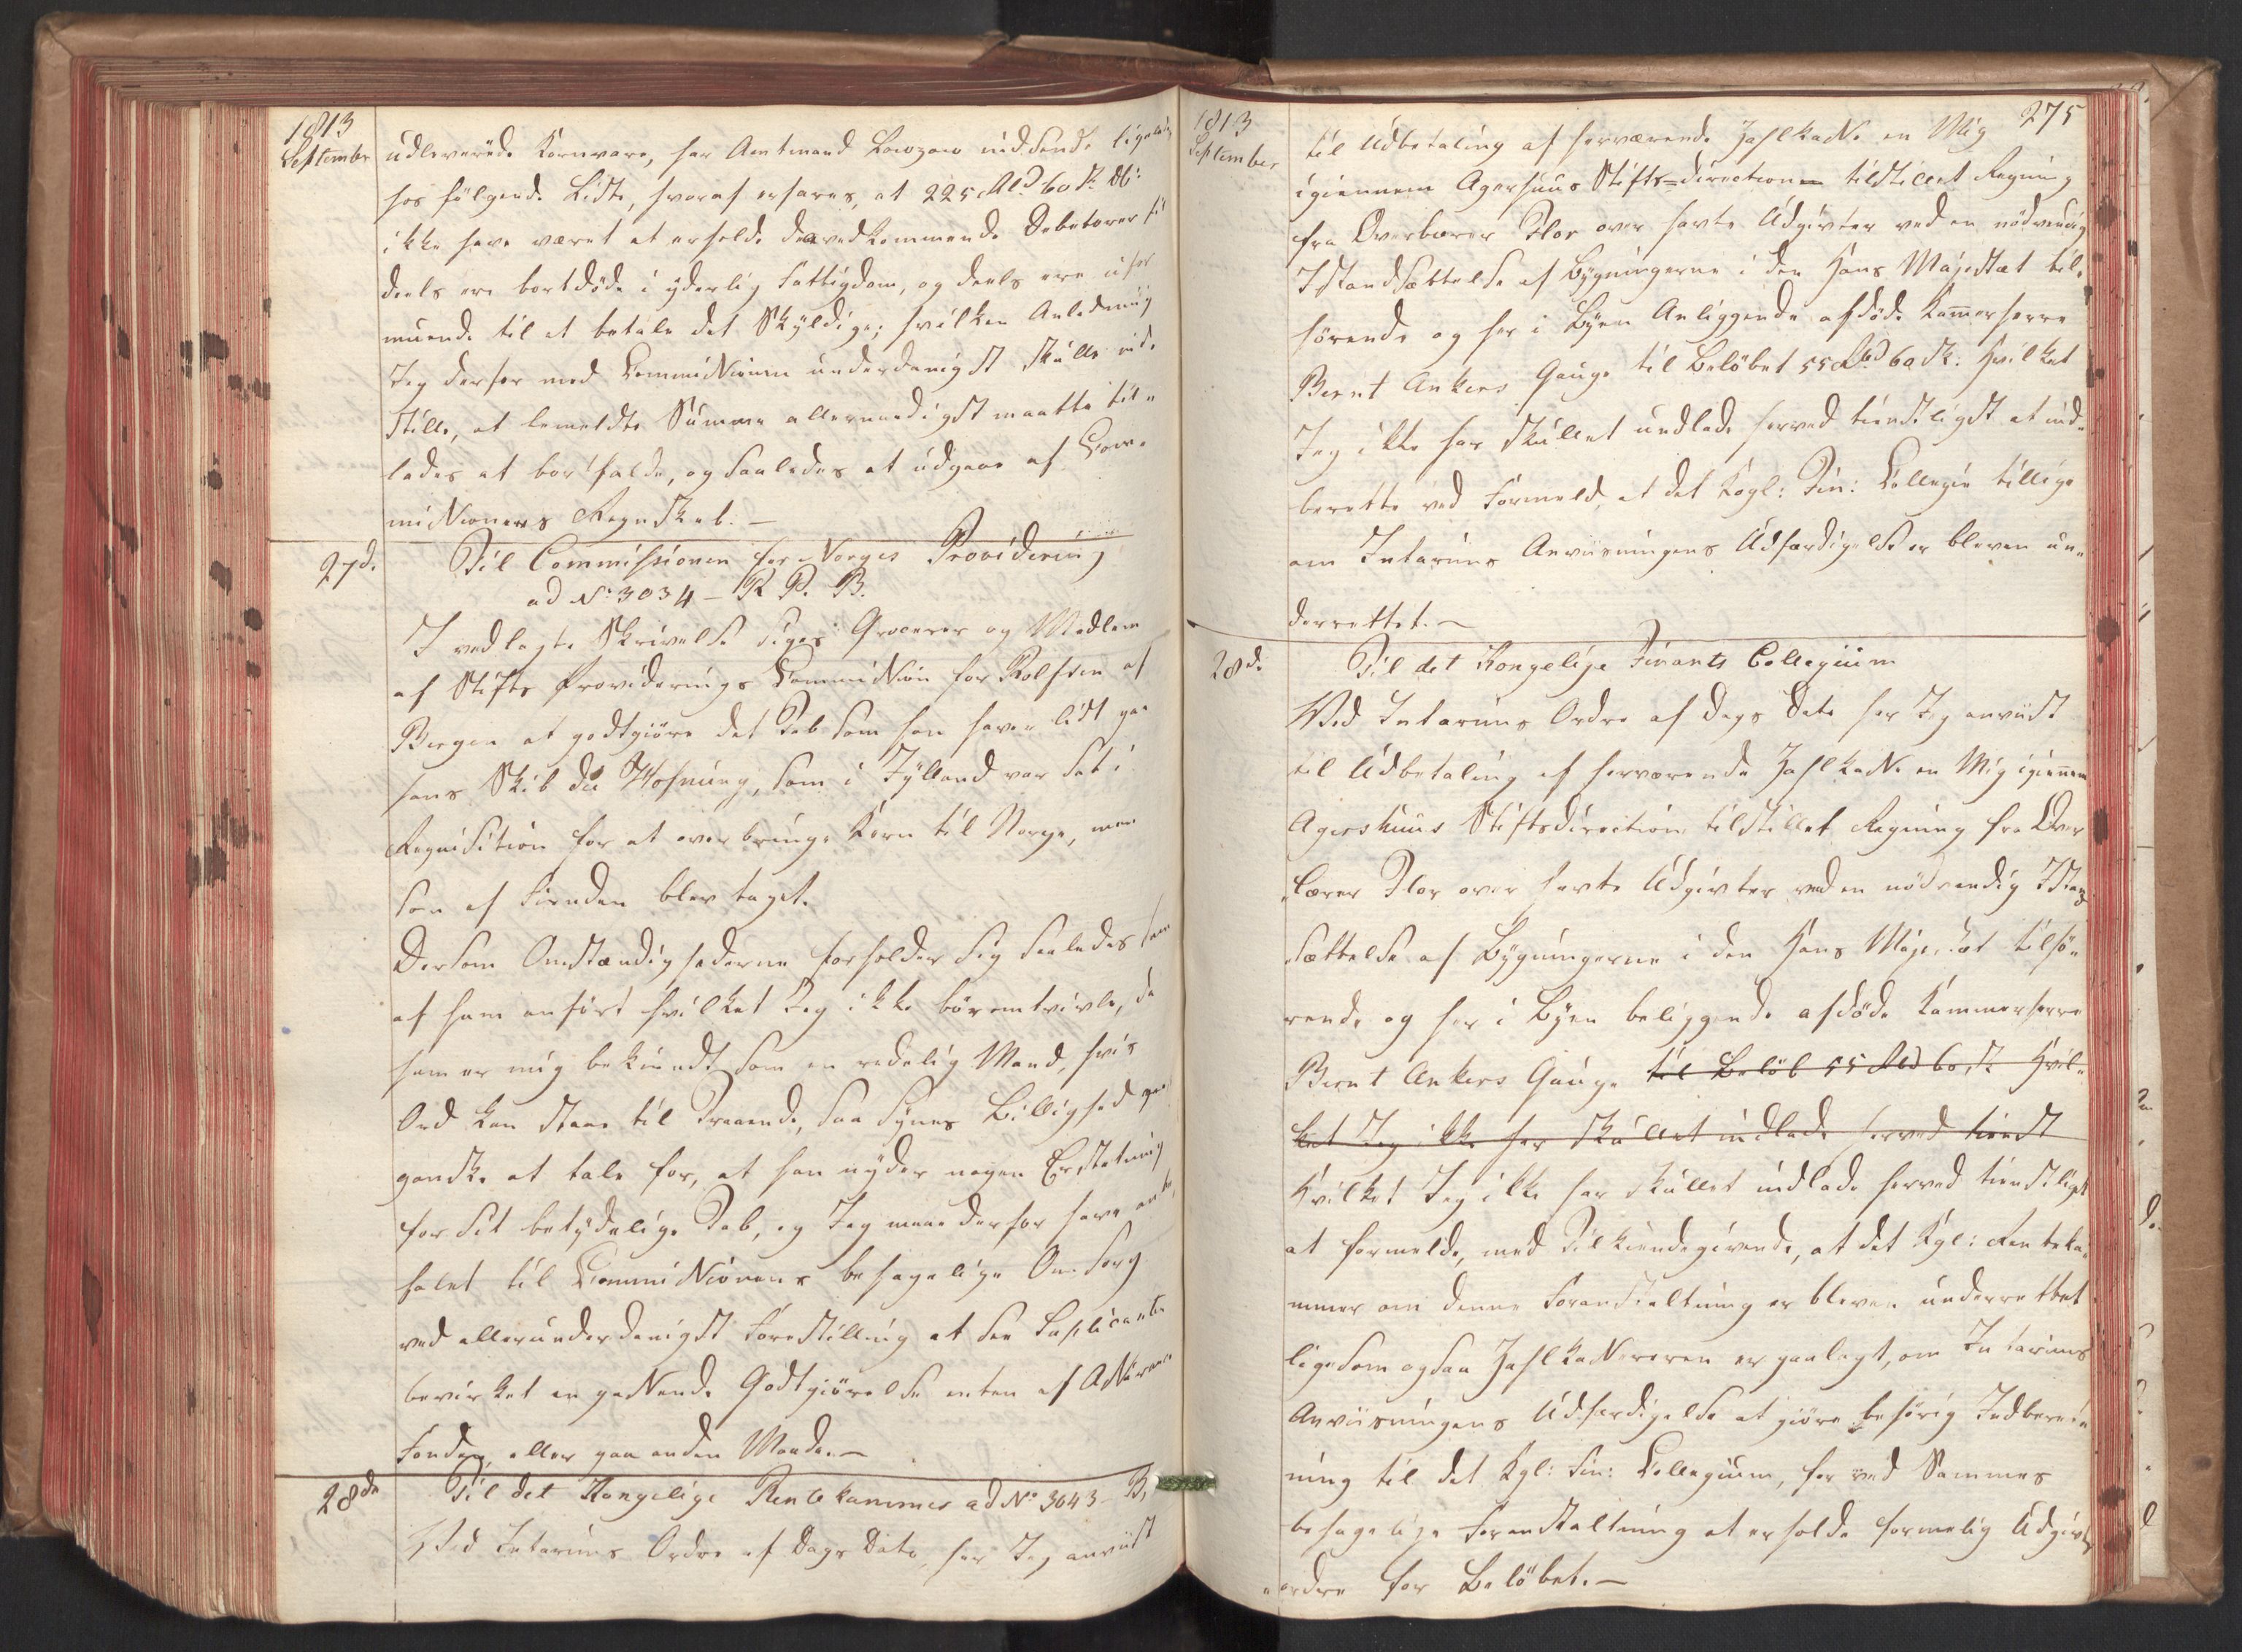 1813
September
udleverede Kornvare, har Amtmand Lowzow indsendt
hos følgende Liste, hvoraf erfares, at 225 Rd 60 s. DC:
ikke have været at erholde da vedkommende Debetorer
deels ere bortdöde i yderlig Fattigdom, og deels ere ufor
muende til at betale det Skyldige; hvilken Anledning
Jeg derfor med Commissionen underdanigst skulle ind-
stille, at bemeldte Summe allernaadigst maatte til-
lades at bortfalde, og saaledes at udgaae af Com-
missionens Regnskab. —
27d.
Til Commissionen for Norges Providering
ad No 3034 – R. P. B.
I vedlagte Skrivelse Grocerer og Medlem
af Stifts Providerings Commission Rolfsen af
Bergen at godtgiöre det Tab som han haver lidt paa
hans Skib die Hofnung, som i Jylland var sat i
Requisition for at overbringe Korn til Norge, men
som af Fienden blev taget.
Dersom Omstændighederne forholder sig saaledes som
af ham anfört hvilket Jeg ikke bör omtvivle, da
ham er mig bekiendt som en redelig Mand, hvis
Ord kan staae til Troende, saa synes Billighed
ganske at tale for, at han nyder nogen Erstatning
for sit betydelige Tab, og Jeg maae derfor have an-
holet til Commissionens behagelige Omsorg
ved allerunderdanigst Forestilling at see Suplicanten
bevirket en passende Godtgiörelse enten af Assurance
Fonden, eller paa anden Maade. —
28de
Til det Kongelige Rentekammer ad No 3043 – B,
Ved Interims Ordre af Dags Dato, har Jeg anviist
1813
September
275
til Udbetaling af herværende Zahlkasse en Mig
igiennem Agershuus Stifts-direction tilstillet Regning
fra Overlærer Flor over havte Udgivter ved en nödvendig
Istandsættelse af Bygningerne i den Hans Majestæt til-
hörende og her i Byen Anliggende afdöde Kammerherre
Bernt Ankers Gaarge til Belöbet 55 Rd 60 s. Hvilket
Jeg ikke har skullet undlade herved tienstligst at ind-
berette ved Formeld, at det Kongl: Fin: Collegie tillige
om Interims Anviisningens Udfærdigelse er bleven un-
derrettet. —
28d.
Til det Kongelige Finants Collegium
Ved Interims Ordre af Dags Dato har Jeg anviist
til Udbetaling af herværende Zahlkasse en Mig igiennem
Agershuus Stiftsdirection tilstillet Regning fra Over
lærer Flor over havte Udgivter ved en nödvendig Istand
sættelse af Bygningerne i den Hans Majestæt tilhö-
rende og her i Byen beliggende afdöde Kammerherre
Bernt Ankers Gaarge til Belöb 55 Rd 60 s. Hvil-
ket Jeg ikke har skullet undlade herved tienst
Hvilket Jeg ikke har skullet undlade herved tienstligst
at formelde, med Tilkiendegivende, at det Kgl: Renteka-
mmer om denne Foranstaltning er bleven underrettet
ligesom ogsaa Zahlkassereren er paalagt, om Interims
Anviisningens Udfærdigelse at giöre behörig Indberet-
ning til det Kgl: Fin: Collegium, for ved Sammes
behagelige Foranstaltning at erholde formelig Udgivts
ordre for Belöbet. —